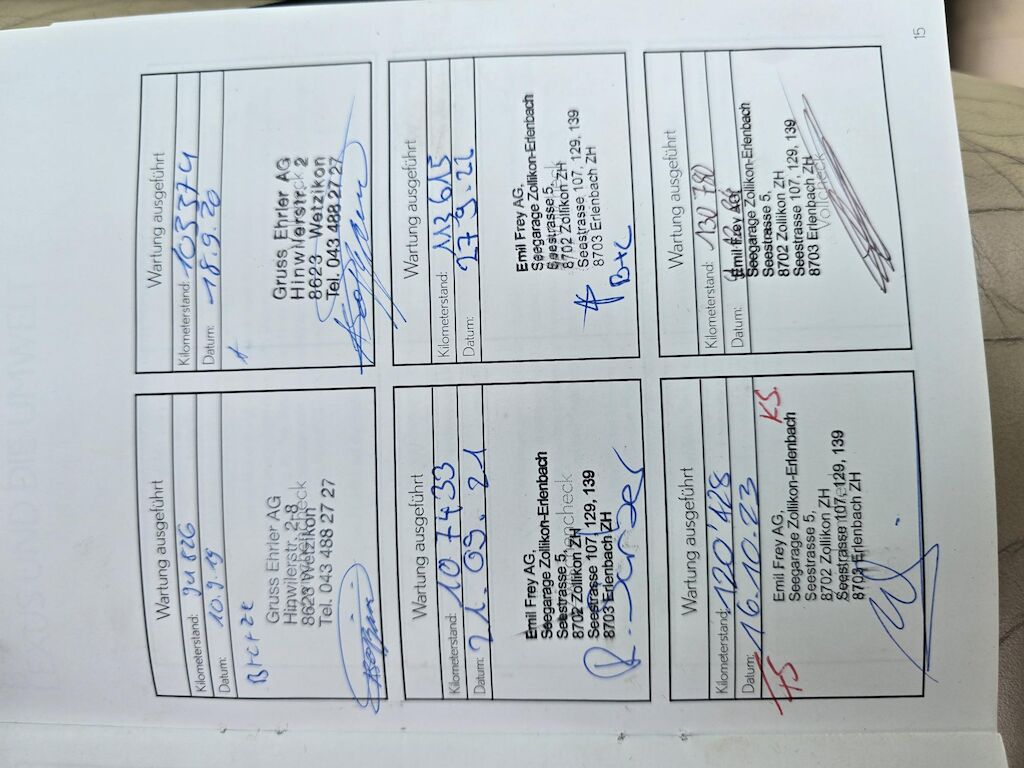 Wartung ausgeführt
Kilometerstand: 94526
Datum: 10.9.19
B+C+ze
Gruss Ehrler AG
Hinwilerstr. 2-8
8623 Wetzikon
Tel. 043 488 27 27
Wartung ausgeführt
Kilometerstand: 103374
Datum: 18.9.20
A
Gruss Ehrler AG
Hinwilerstr. 2
8623 Wetzikon
Tel. 043 488 27 27
Wartung ausgeführt
Kilometerstand: 107433
Datum: 21.09.21
Emil Frey AG,
Seegarage Zollikon-Erlenbach
Seestrasse 5,
8702 Zollikon ZH
Seestrasse 107, 129, 139
8703 Erlenbach ZH
Wartung ausgeführt
Kilometerstand: 113615
Datum: 27.9.22
Emil Frey AG,
Seegarage Zollikon-Erlenbach
Seestrasse 5,
8702 Zollikon ZH
Seestrasse 107, 129, 139
8703 Erlenbach ZH
B+C
Wartung ausgeführt
Kilometerstand: 120'428
Datum: 16.10.23
KS.
Emil Frey AG,
Seegarage Zollikon-Erlenbach
Seestrasse 5,
8702 Zollikon ZH
Seestrasse 107, 129, 139
8703 Erlenbach ZH
Wartung ausgeführt
Kilometerstand: 130 780
Datum:
Emil Frey AG,
Seegarage Zollikon-Erlenbach
Seestrasse 5,
8702 Zollikon ZH
Seestrasse 107, 129, 139
8703 Erlenbach ZH
15